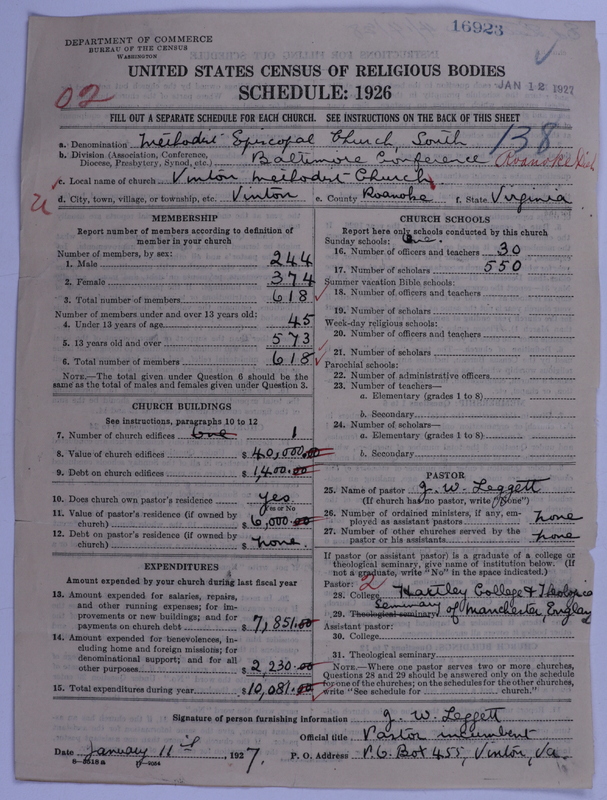 16923
DEPARTMENT OF COMMERCE
BUREAU OF THE CENSUS
WASHINGTON
UNITED STATES CENSUS OF RELIGIOUS BODIES
SCHEDULE: 1926
JAN 12 1927
02
FILL OUT A SEPARATE SCHEDULE FOR EACH CHURCH. SEE INSTRUCTIONS ON THE BACK OF THIS SHEET
138
a. Denomination Methodist Episcopal Church, South
b. Division (Association, Conference, Diocese, Presbytery, Synod, etc.) Baltimore Conference Roanoke Dist
c. Local name of church Vinton Methodist Church
d. City, town, village, or township, etc. Vinton e. County Roanoke f. State Virginia
MEMBERSHIP
Report number of members according to definition of member in your church
Number of members, by sex:
1. Male 244
2. Female 374
3. Total number of members 618
Number of members under and over 13 years old:
4. Under 13 years of age 45
5. 13 years old and over 573
6. Total number of members 618
NOTE.—The total given under Question 6 should be the same as the total of males and females given under Question 3.
CHURCH BUILDINGS
See instructions, paragraphs 10 to 12
7. Number of church edifices One 1
8. Value of church edifices $40,000.00
9. Debt on church edifices $1,400.00
10. Does church own pastor's residence yes
Yes or No
11. Value of pastor's residence (if owned by church) $6,000.00
12. Debt on pastor's residence (if owned by church) $none.
EXPENDITURES
Amount expended by your church during last fiscal year
13. Amount expended for salaries, repairs, and other running expenses; for improvements or new buildings; and for payments on church debt $7,851.00
14. Amount expended for benevolences, including home and foreign missions; for denominational support; and for all other purposes $2,230.00
15. Total expenditures during year $10,081.00
CHURCH SCHOOLS
Report here only schools conducted by this church
Sunday schools: One.
16. Number of officers and teachers 30
17. Number of scholars 550
Summer vacation Bible schools:
18. Number of officers and teachers
19. Number of scholars
Week-day religious schools:
20. Number of officers and teachers
21. Number of scholars
Parochial schools:
22. Number of administrative officers
23. Number of teachers—
a. Elementary (grades 1 to 8)
b. Secondary
24. Number of scholars—
a. Elementary (grades 1 to 8)
b. Secondary
PASTOR
25. Name of pastor J. W. Leggett
(If church has no pastor, write "None")
26. Number of ordained ministers, if any, employed as assistant pastors none
27. Number of other churches served by the pastor or his assistants none
If pastor (or assistant pastor) is a graduate of a college or theological seminary, give name of institution below. (If not a graduate, write "No" in the space indicated.)
Pastor: 2
28. College Hartley College & Theologica
29. Theological seminary Seminary of Manchester, England
Assistant pastor:
30. College
31. Theological seminary
NOTE.—Where one pastor serves two or more churches, Questions 28 and 29 should be answered only on the schedule for one of the churches; on the schedules for the other churches, write "See schedule for church."
Signature of person furnishing information J. W. Leggett
Official title Pastor incumbent
Date January 11th, 1927. P. O. Address P.O. Box 455, Vinton, Va.